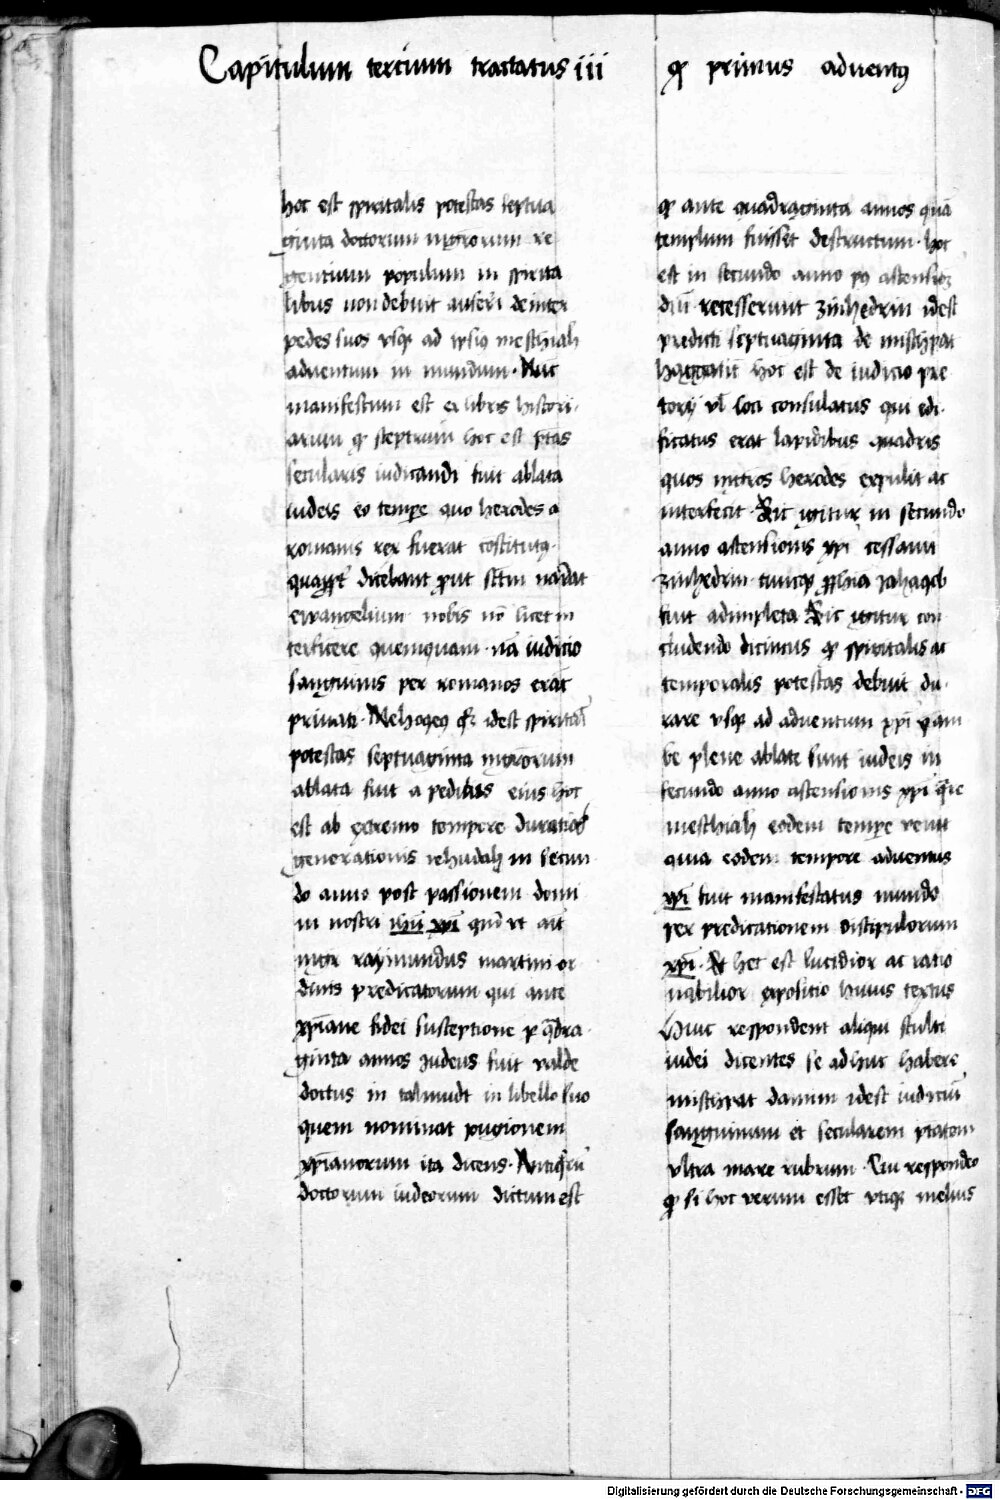 Capitulum tercium tractatus iii ꝙ primus adventꝰ
hoc est spiritalis potestas septua
ginta doctorum mgr̄orum re
gentium populum in spirita
libus non debuit auferri de inter
pedes suos vsqꝫ ad ipsiꝰ meschiah
adventum in mundum. Nūc
manifestum est ex libris histori
arum ꝙ sceptrum hoc est ptās
secularis iudicandi fuit ablata
iudeis eo tempore quo herodes a
romanis rex fuerat cōstitutꝰ.
dicebant prout scdm
ewangelium nobis nō licet in
terficere quemquam. nā iudicio
sanguinis per romanos erāt
privati. Mehoqeq idest spirital
potestas septuaginta mgr̄orum
ablata fuit a pedibus eius hoc
est ab extremo tempore
generationis iehudah in secun
do anno post passionem domi
ni nostri ihū xp̄i qm̄ vt ait
mgr̄ raymundus martini or
dinis predicatorum qui ante
xp̄iane fidei susceptione p qͣdra
ginta annos iudeus fuit valde
doctus in talmudt in libello suo
quem nominat pugionem
xp̄ianorum ita dicens. Antiqͦrū
doctorum iudeorum dictum est
ꝙ ante quadraginta annos quā
templum fuisset destructum. hoc
est in secundo anno pꝰ
recesserunt zinhedrin idest
predicti septuaginta de mischpat
haggatit hoc est de iudicio pre
torij vl loci consulatus qui edi
ficatus erat lapidibus quadris
quos mgr̄os herodes expulit ac
interfecit. Sic igitur in secundo
anno ascensionis xp̄i cessavit
zinhedrin tuncqꝫ pphīa jahaqob
fuit adimpleta Sic igitur con
cludendo dicimus ꝙ spiritalis ac
temporalis potestas debuit du
rare vsqꝫ ad adventum xp̄i qͣ am
be plene ablate sunt iudeis in
secundo anno ascensionis xp̄i
meschiah eodem tempore venit
quia eodem tempore adventus
xp̄i fuit manifestatus mundo
per predicationem discipulorum
xp̄i. Et hec est lucidior ac ratio
nabilior expositio huius textus
Huic respondent aliqui stulti
iudei dicentes se adhuc habere
mischpat damim idest iudiciū
sanguinum et secularem ptātem
vltra mare rubrum. Cui respondeo
ꝙ si hoc verum esset vtiqꝫ melius
Digitalisierung gefördert durch die Deutsche Forschungsgemeinschaft - DFG